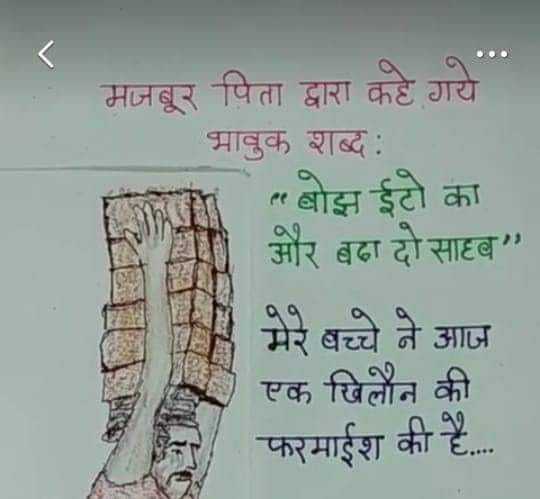 मजबूर पिता द्वारा कहे गये
भावुक शब्द :
“ बोझ ईटो का
और बढा दो साहब ”
मेरे बच्चे ने आज
एक खिलौन की
फरमाईश की है....